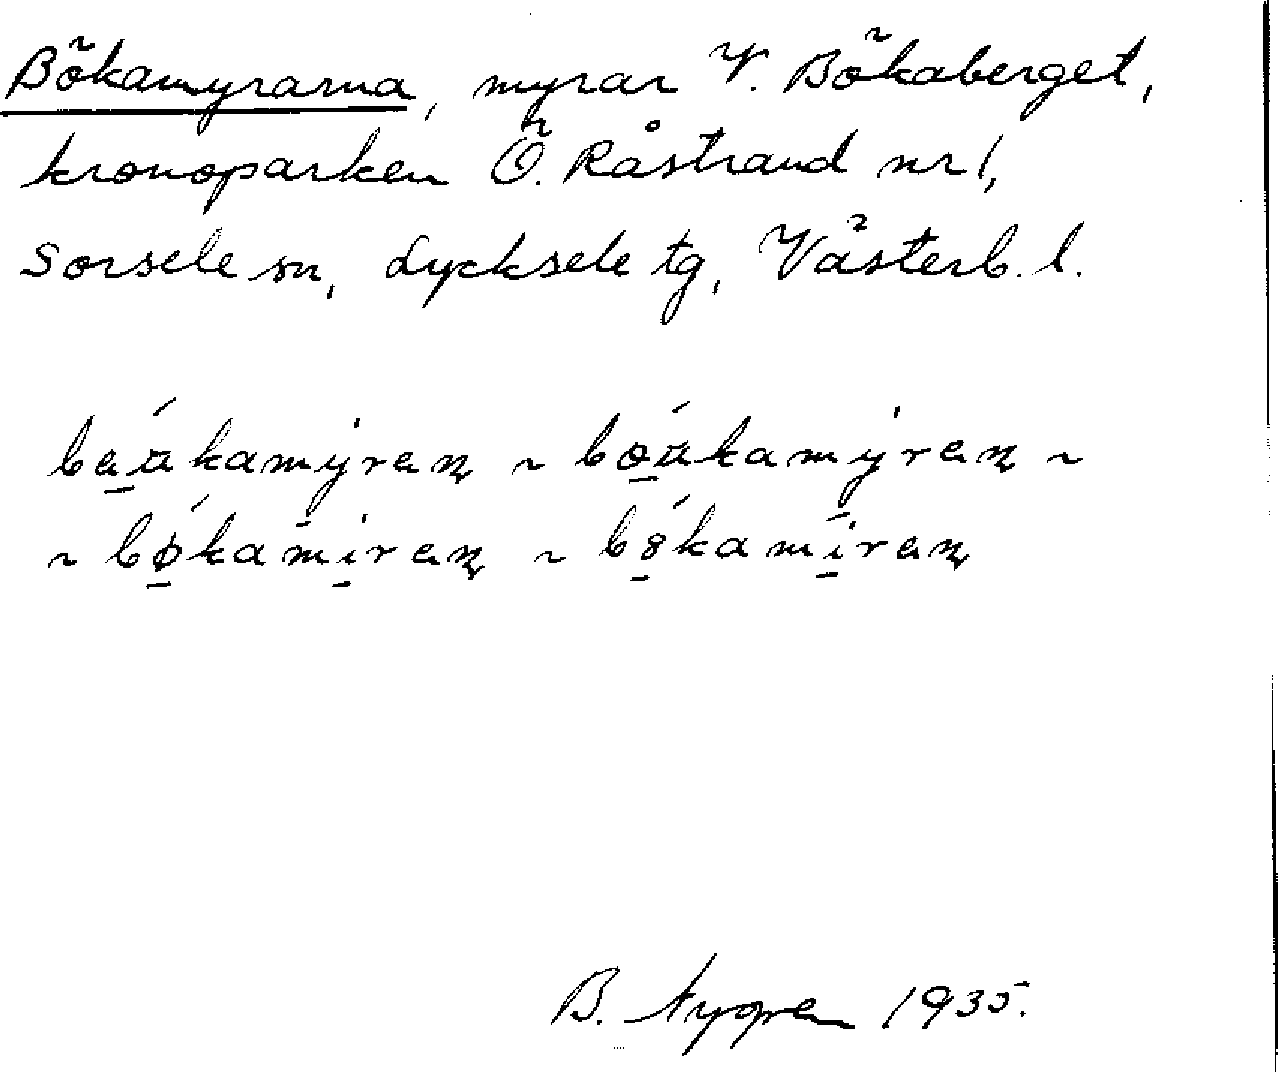 Bökamyrarna, myrar V. Bökaberget,
kronoparken Ö. Råstrand nr 1,
Sorsele sn, Lycksele tg, Västerb. l.
baú̯kamýreɳ ~ boú̯kamýreɳ ~
~ bǿ̱kamī̱reɳ ~ b8̱́kamī̱reɳ
B. Nygren 1935.